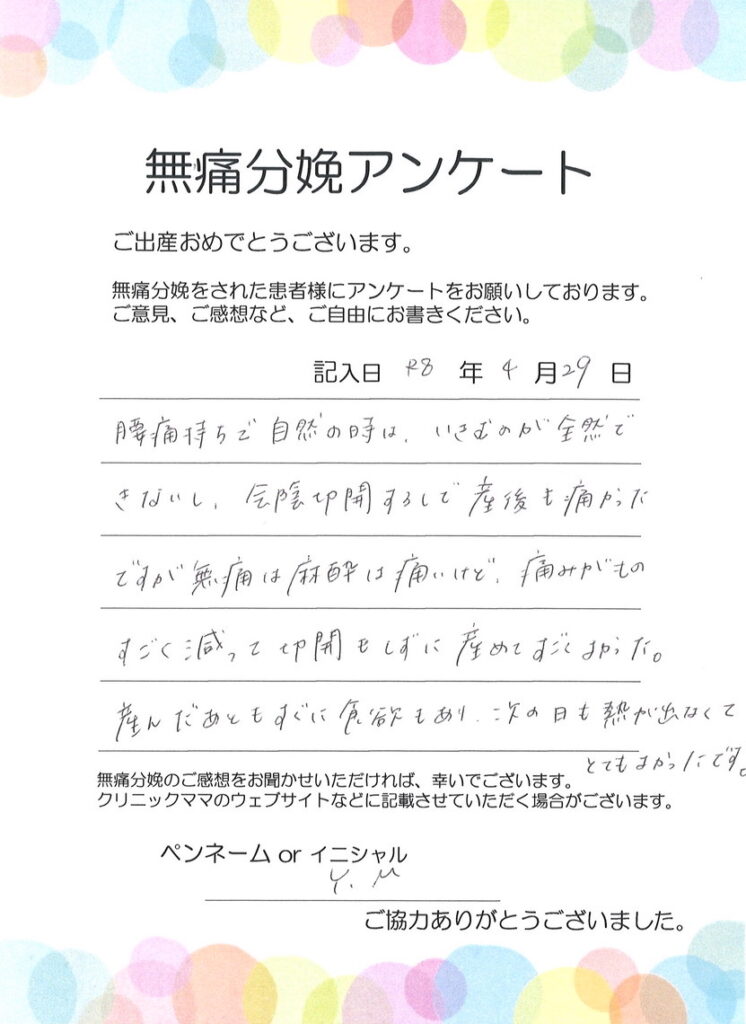 無痛分娩アンケート
ご出産おめでとうございます。
無痛分娩をされた患者様にアンケートをお願いしております。
ご意見、ご感想など、ご自由にお書きください。
記入日 R8 年 4 月 29 日
腰痛持ちで自然の時は、いきむのが全然で
きないし、会陰切開するしで産後も痛かった
ですが無痛は麻酔は痛いけど、痛みがもの
すごく減って切開もしずに産めてすごくよかった。
産んだあともすぐに食欲もあり、次の日も熱が出なくて
とてもよかったです。
無痛分娩のご感想をお聞かせいただければ、幸いでございます。
クリニックママのウェブサイトなどに記載させていただく場合がございます。
ペンネーム or イニシャル
Y. M
ご協力ありがとうございました。